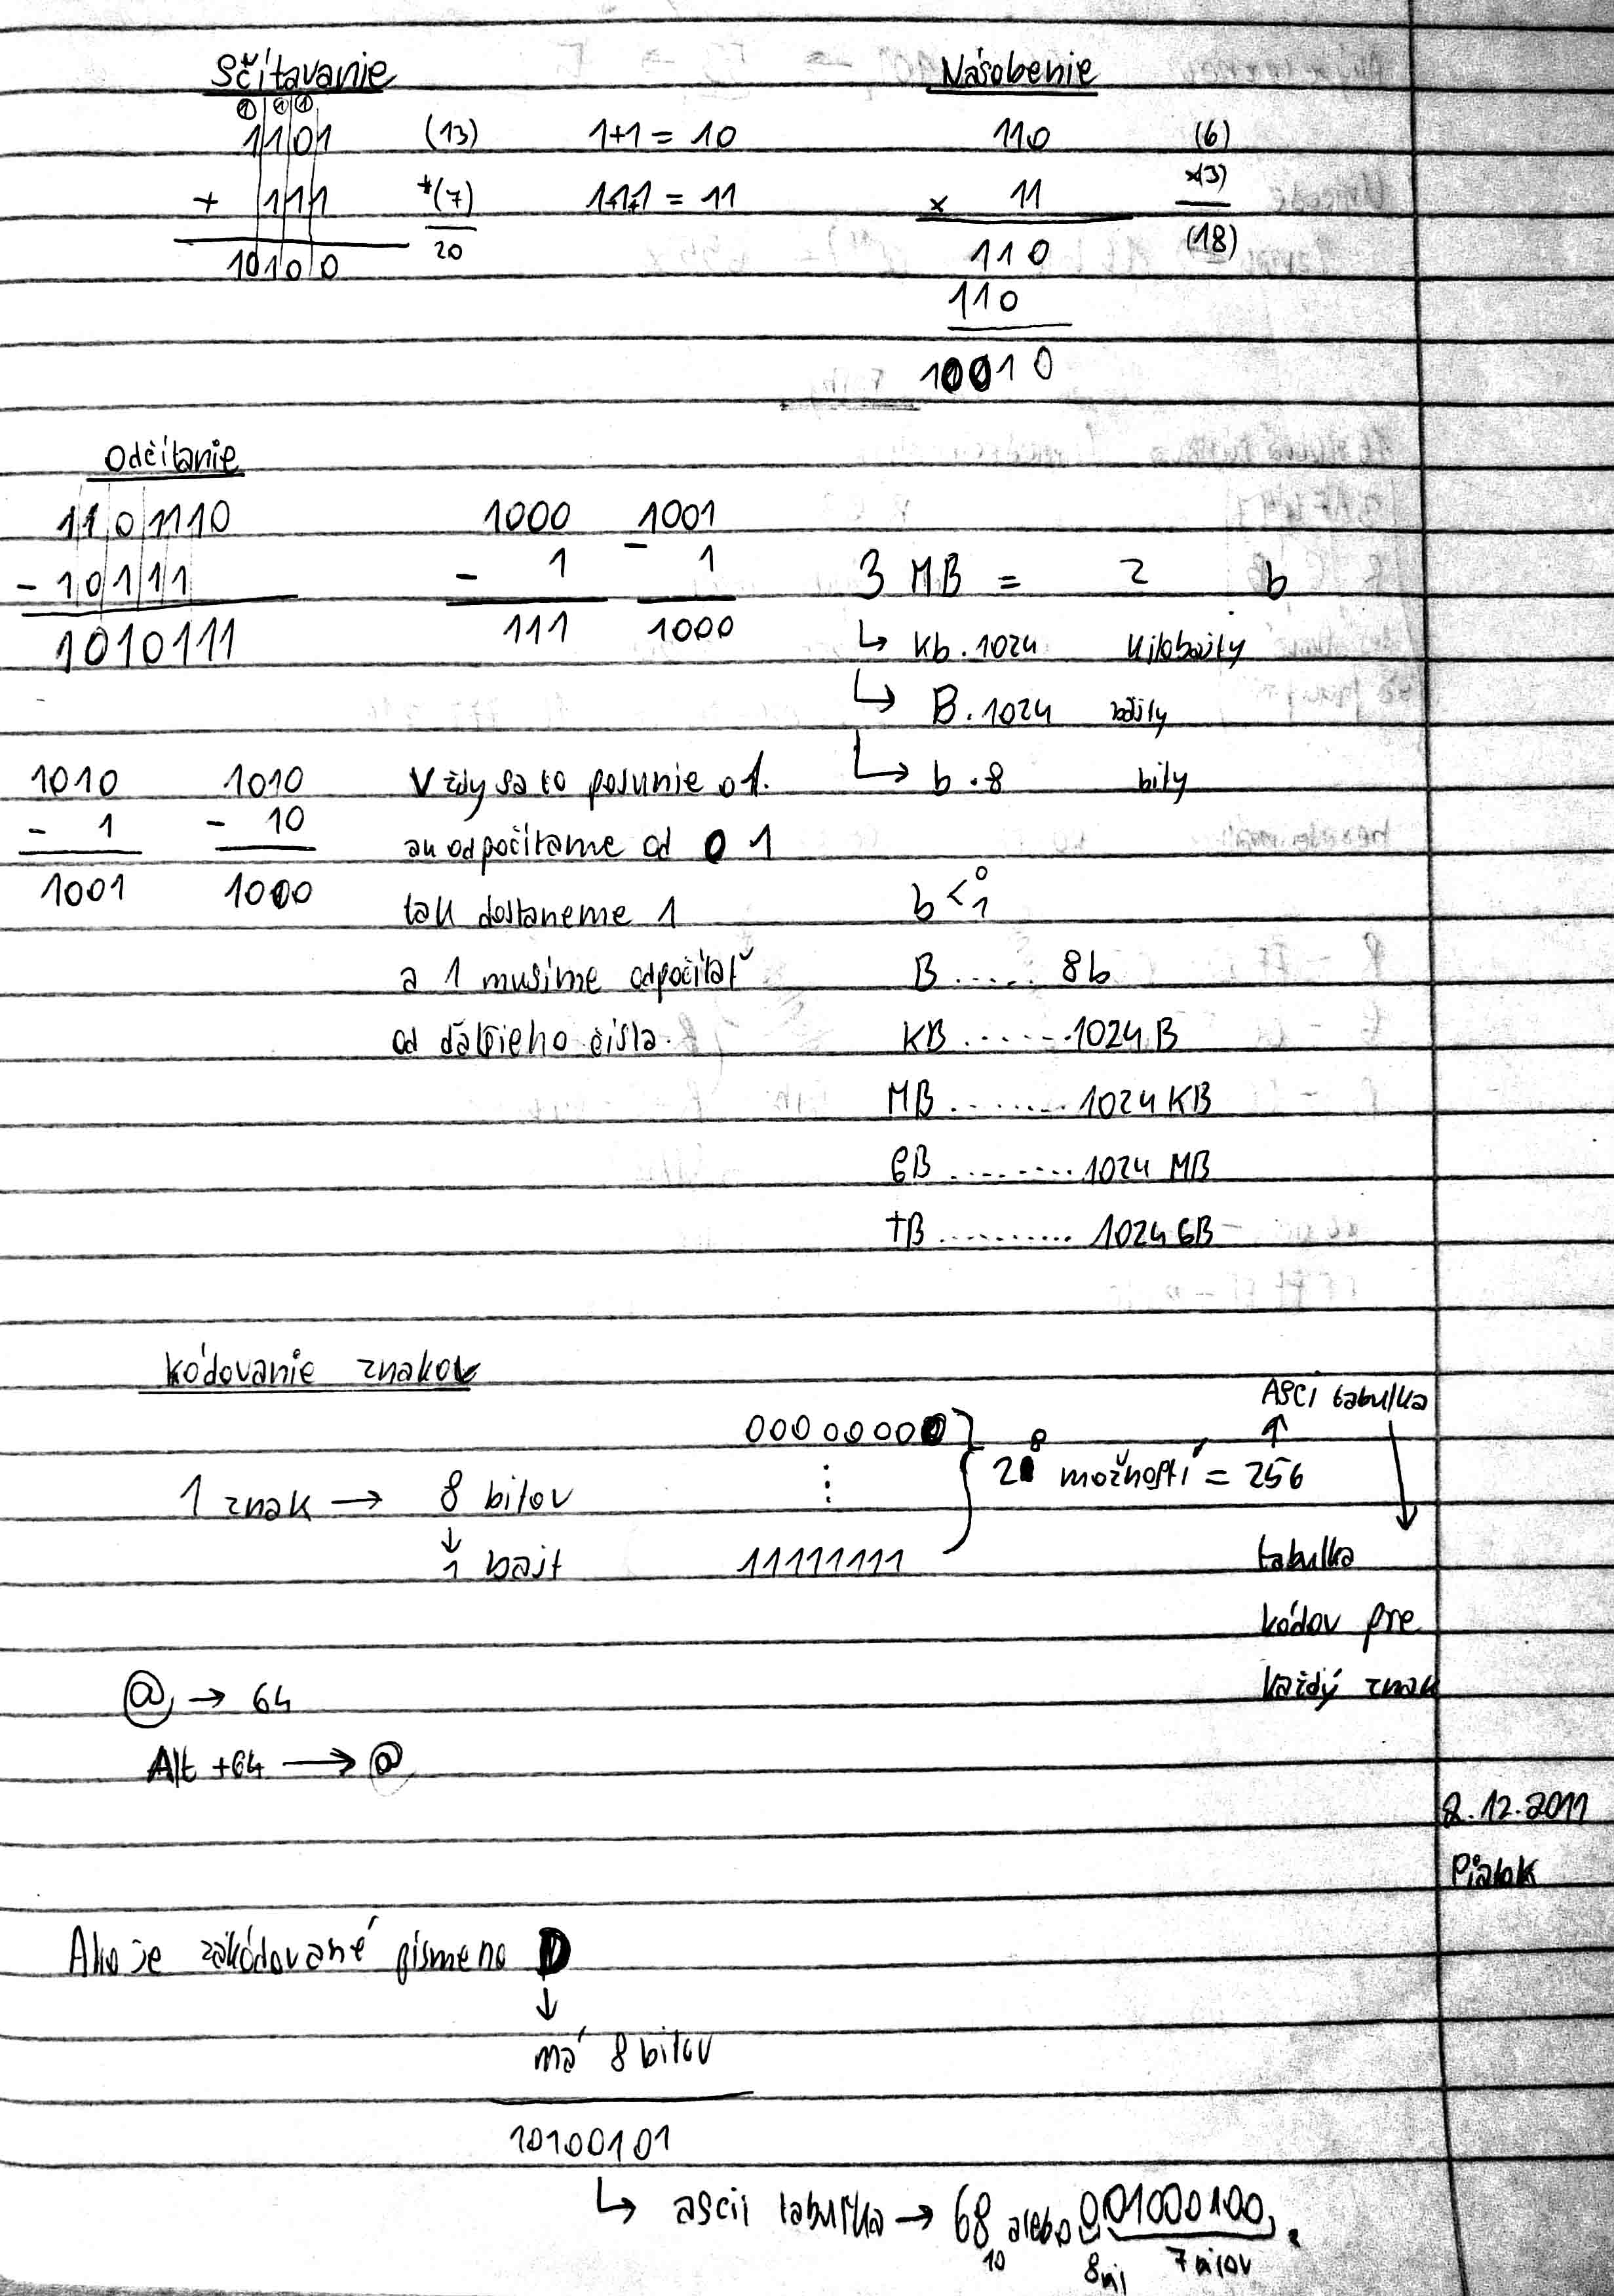 Sčítavanie
1 1 1
1101 (13) 1+1 = 10
+ 111 +(7) 1+1+1 = 11
10100 20
Násobenie
110 (6)
x 11 x(3)
110 (18)
110
10010
Odčítanie
1101110
- 10111
1010111
1000
- 1
111
1001
- 1
1000
3 MB = 2 b
↳ Kb . 1024 Kilobajty
↳ B . 1024 bajty
↳ b . 8 bity
1010
- 1
1001
1010
- 10
1000
Vždy sa to posunie o 1.
ak odpočítame od 0 1
tak dostaneme 1
a 1 musíme odpočítať
od ďalšieho čísla.
b < 0 1
B ..... 8b
KB ...... 1024 B
MB ........ 1024 KB
GB ......... 1024 MB
TB .......... 1024 GB
Kódovanie znakov
1 znak → 8 bitov
↓
1 bajt
00000000
⋮
11111111
2⁸ možností = 256
↑
ASCI tabulka
↓
tabulka
kódov pre
každý znak
@ → 64
Alt + 64 → @
2.12.2011
Piatok
Ako je zakódované písmeno D
↓
má 8 bitov
10100101
↳ ascii tabuľka → 68 alebo 001000100.
10